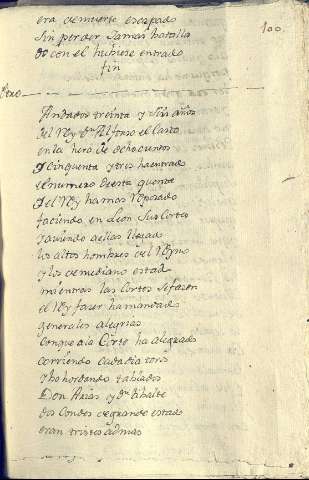 100
era de muerte escapado
sin perder Jamas batalla
do con el hubiese entrado
fin
Andados treinta y seis años
del Rey dn Alfonso el casto
en la hera de ochocientos
y cinquenta y tres ha entrado
el numero de esta quenta
y el Rey ha mas reposado
faciendo en Leon sus Cortes
y aviendo a ellas llegado
los altos hombres del Reyno
y los de mediano estado
mientras las Cortes se facen
el Rey facer ha mandado
generales alegrias
con que a la Corte ha alegrado
corriendo cada dia toros
y bohordando tablados
Don Arias y dn Tibalte
dos Condes de grande estado
eran tristes ademas